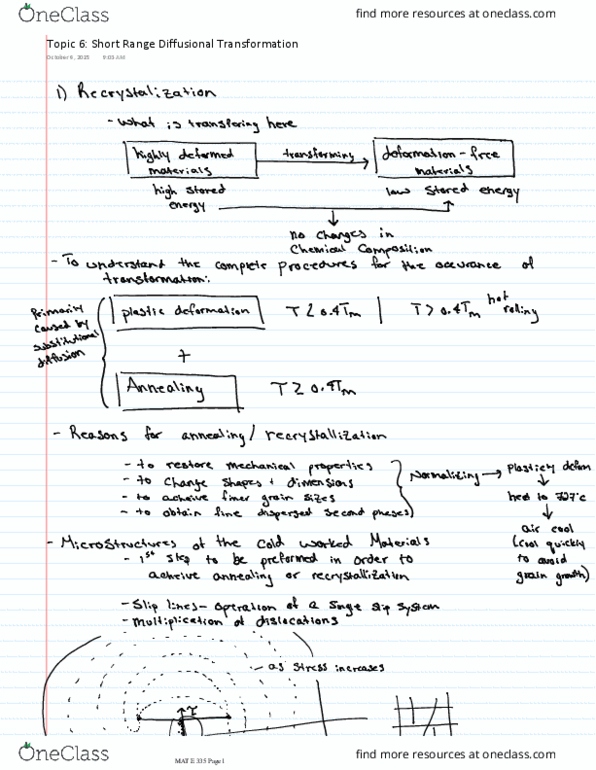 OneClass
find more resources at oneclass.com
Topic 6: Short Range Diffusional Transformation
October 9, 2015 9:03 AM
1) Recrystalization
- what is transfering here
highly deformed materials
transforming
deformation-free materials
high stored energy
low stored energy
no changes in
Chemical Composition
- To understand the complete procedures for the occurance of
transformation:
Primarity
caused by
substitutional
diffusion
plastic deformation
T ≤ 0.4Tm
T > 0.4Tm
hot rolling
+
Annealing
T ≥ 0.4Tm
- Reasons for annealing/recrystallization
- to restore mechanical properties
- to change shapes + dimensions
- to acheive finer grain sizes
- to obtain fine dispersed second phases
Normalizing
plasticly deform
air cool
(cool quickly
to avoid
grain growth)
- MicroStructures of the cold worked Materials
- 1st step to be preformed in order to
acheive annealing or recrystallization
- Slip lines - operation of a single slip system
- multiplication of dislocations
- as stress increases
τ
OneClass
MAT E 335 Page 1
find more resources at oneclass.com